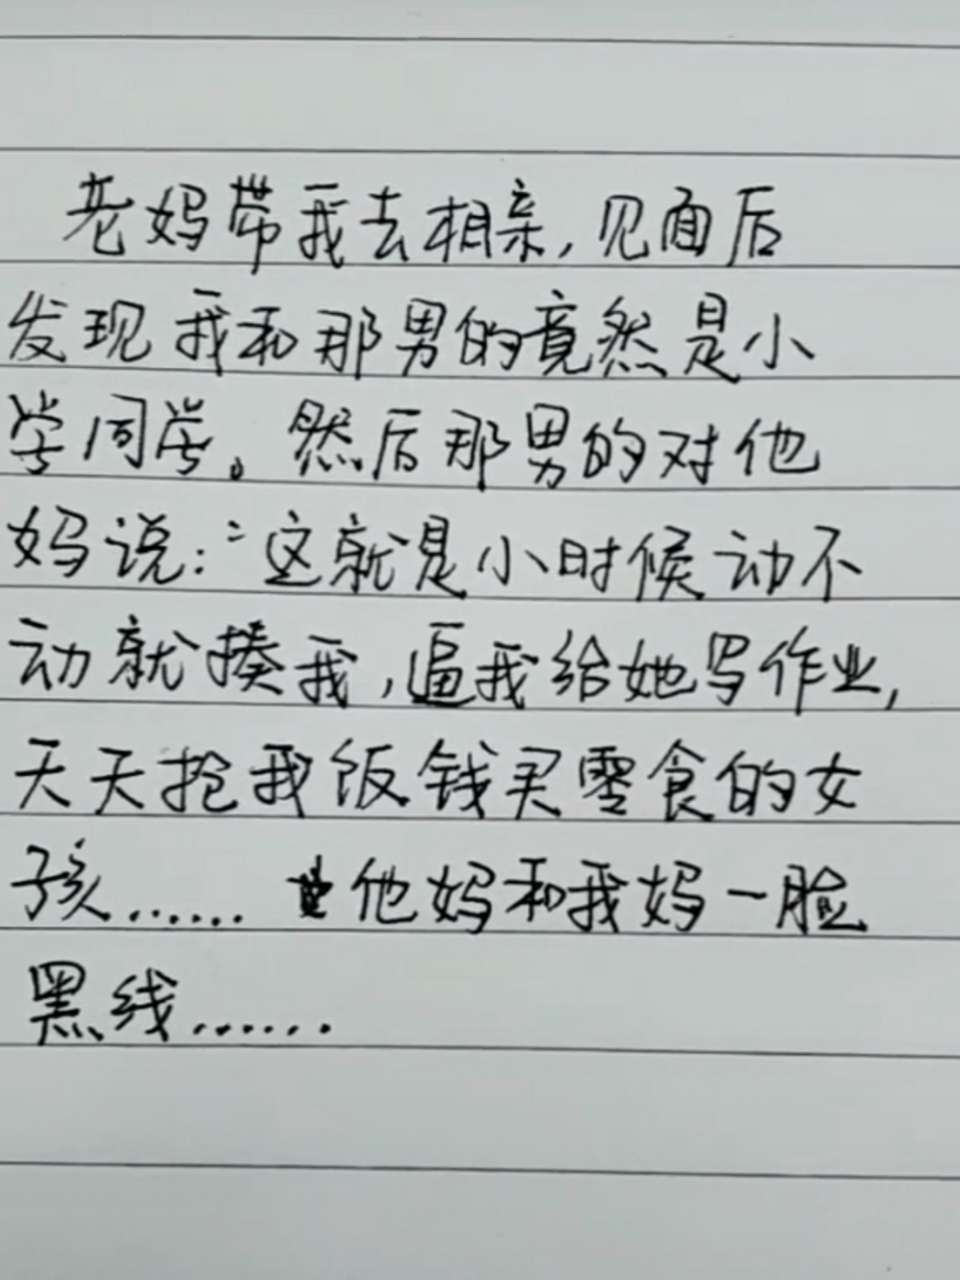 老妈带我去相亲，见面后
发现我和那男的竟然是小
学同学。然后那男的对他
妈说：“这就是小时候动不
动就揍我，逼我给她写作业，
天天抢我饭钱买零食的女
孩…… 他妈和我妈一脸
黑线……